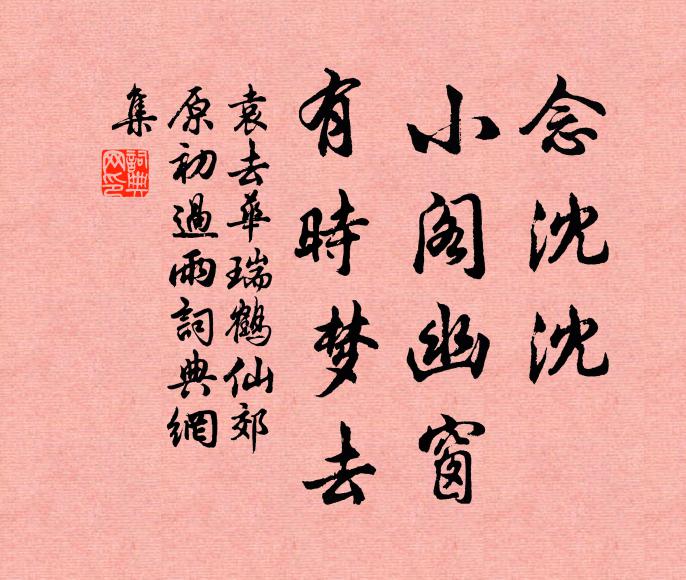 念沈沈
小阁幽窗
有時梦去
袁去華瑞鶴仙郊
原初過雨詞典網
集
詞典網印